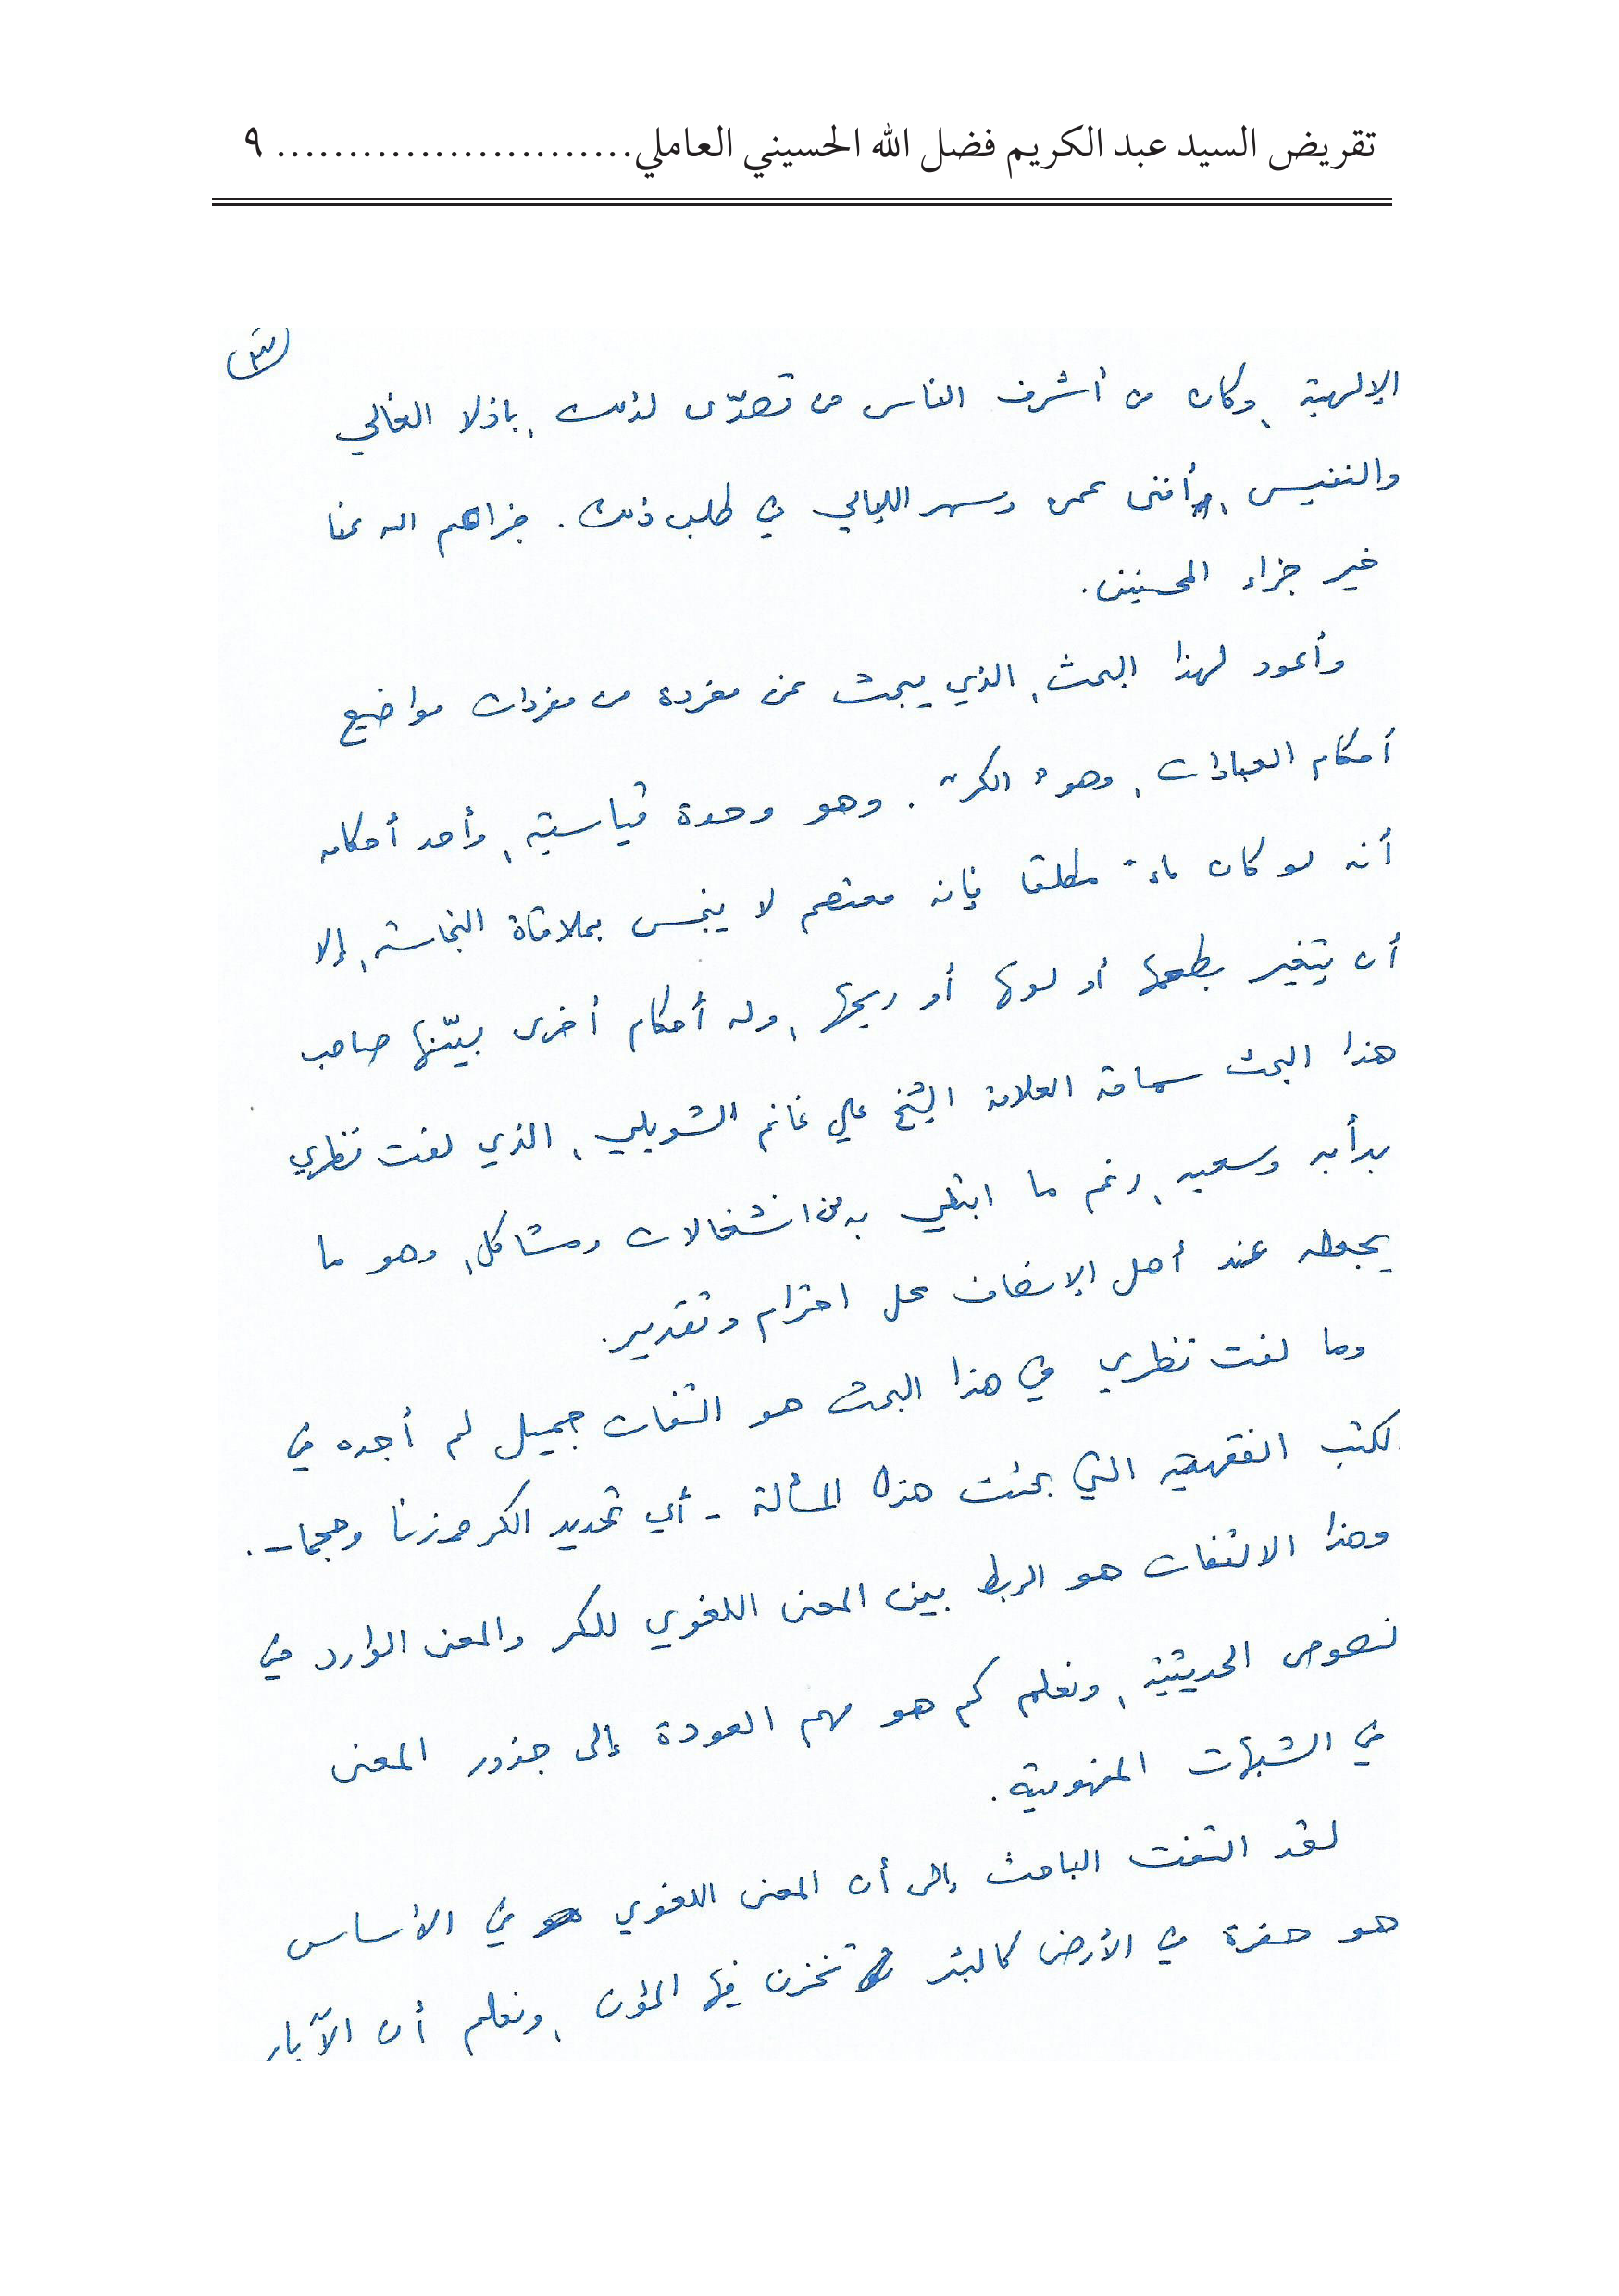 تقريض السيد عبد الكريم فضل الله الحسيني العاملي......................... ٩
(٣)
الإلهية، وكان من أشرف الناس من تصدّى لذلك، باذلا الغالي
والنفيس، أفنى عمره وسهر الليالي في طلب ذلك. فجزاهم الله عنا
خير جزاء المحسنين.
وأعود لهذا البحث، الذي يبحث عن مفردة من مفردات مواضيع
أحكام العبادات، وهو "الكر". وهو وحدة قياسية، وأحد أحكامه
أنه لو كان ماءً مطلقا فإنه معتصم لا ينجس بملاقاة النجاسة، إلا
أن يتغير بطعمها أو لونها أو ريحها، وله أحكام أخرى بيّنها صاحب
هذا البحث سماحة العلامة الشيخ علي غانم الشويلي، الذي لفت نظري
بدأبه وسعيه، رغم ما ابتلي به من انشغالات ومشاكل، وهو ما
يجعله عند أهل الإنصاف محل احترام وتقدير.
وما لفت نظري في هذا البحث هو التفات جميل لم أجده في
لكتب الفقهية التي بحثت هذه المسألة - أي تحديد الكر وزنا وحجما -.
وهذا الالتفات هو الربط بين المعنى اللغوي للكر والمعنى الوارد في
لنصوص الحديثية، ونعلم كم هو مهم العودة إلى جذور المعنى
في الشبهات المفهومية.
لقد التفت الباحث إلى أن المعنى اللغوي في الأساس
هو حفرة في الأرض كالبئر تخزن فيها المؤن، ونعلم أن الآبار